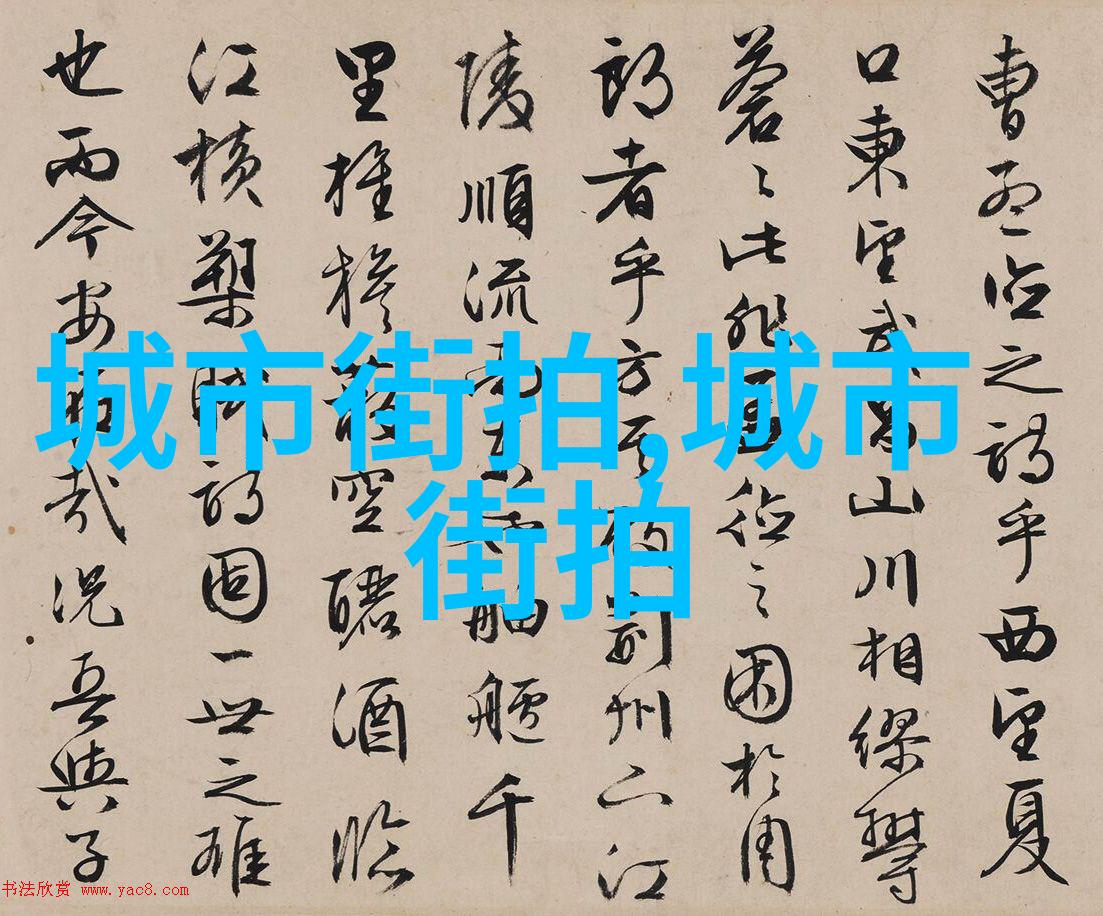 曹孟德之詩乎西望夏
口東望武昌山川相繆鬱
蒼々此非孟德之困於周
郎者乎方其破荆州下江
陵順流而東也舳艫千
里旌旗蔽空釃酒臨
江橫槊賦詩固一世之雄
也而今安在哉況吾與子
城市街拍,城市
街拍
书法欣赏 www.yac8.com